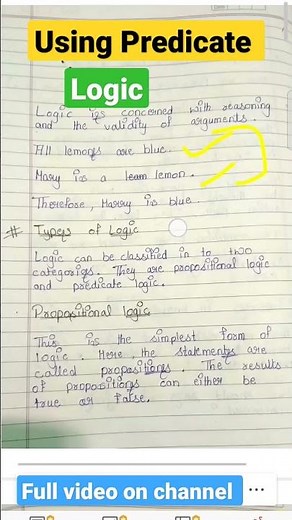 Using Predicate
Logic
Logic is concerned with reasoning
and the validity of arguments.
All lemons are blue.
Mary is a leam lemon.
Therefore, Marry is blue.
# Types of Logic
Logic can be classified in to two
categories. They are propositional logic
and predicate logic.
Propositional logic
This is the simplest form of
logic. Here the statements are
called propositions. The results
of propositions can either be
true or false.
Full video on channel ...